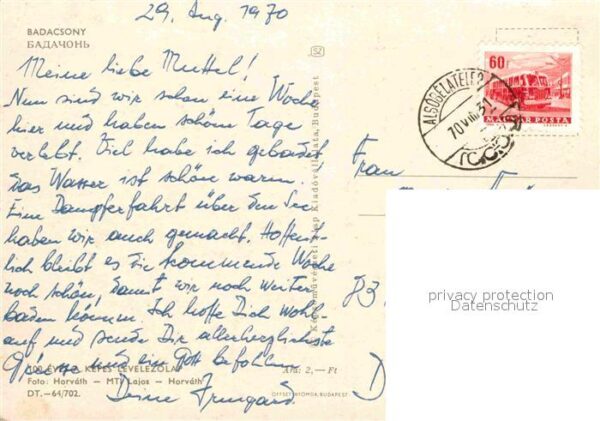 29. Aug. 1970
BADACSONY
БАДАЧОНЬ
Meine liebe Muttel!
Nun sind wir schon eine Woche
hier und haben schöne Tage
verlebt. Viel habe ich gebadet,
das Wasser ist schön warm.
Eine Dampferfahrt über den See
haben wir auch gemacht. Hoffent-
lich bleibt es die kommende Woche
noch schön, damit wir noch weiter
baden können. Ich hoffe Dich wohl-
auf und sende Dir allerherzlichste
Grüsse und ein Gott befohlen
Deine Irmgard.
100 ÉVES A KÉPES LEVELEZŐLAP
Foto: Horváth — MTI Lajos — Horváth
DT.—64/702.
Ára: 2,— Ft
OFFSET NYOMDA, BUDAPEST
Képzőművészeti Alap Kiadóvállalata, Budapest
60f
MAGYAR POSTA
70 VIII 31
Frau
83
D
privacy protection
Datenschutz